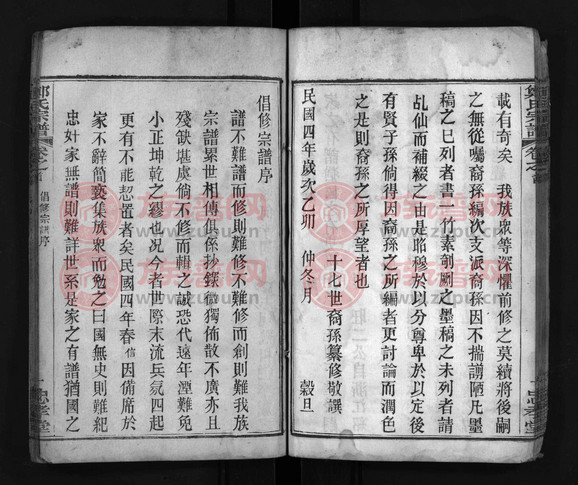 載有奇矣 我族衆等深懼前修之莫續將後嗣
之無從囑裔孫編次支派裔孫因不揣謭陋凡墨
稿之已列者書一行素剞劂之墨稿之未列者請
乩仙而補綴之由是昭穆於以分尊卑於以定後
有賢子孫倘得因裔孫之所編者更討論而潤色
之是則裔孫之所厚望者也
十七世裔孫纂修敬譔
民國四年歲次乙卯 仲冬月 穀旦
鄭氏宗譜 卷之首
倡修宗譜序
譜不難譜而修則難修不難修而創則難我族
宗譜累世相傳俱係抄錄微獨佈散不廣亦且
殘缺堪虞倘不修而輯之誠恐代遠年湮難免
小正坤乾之繆也况今者世際末流兵氣四起
更有不能恝置者矣民國四年春 因備席於
家不辭簡褻集族衆而勉之曰國無史則難紀
忠奸家無譜則難詳世系是家之有譜猶國之
鄭氏宗譜 卷之首 倡修宗譜序 一 忠孝堂
族譜网
www.zupu.cn